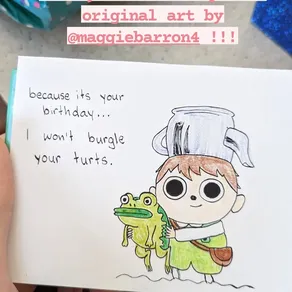 original art by
@maggiebarron4 !!!
because its your
birthday...
I won't burgle
your turts.